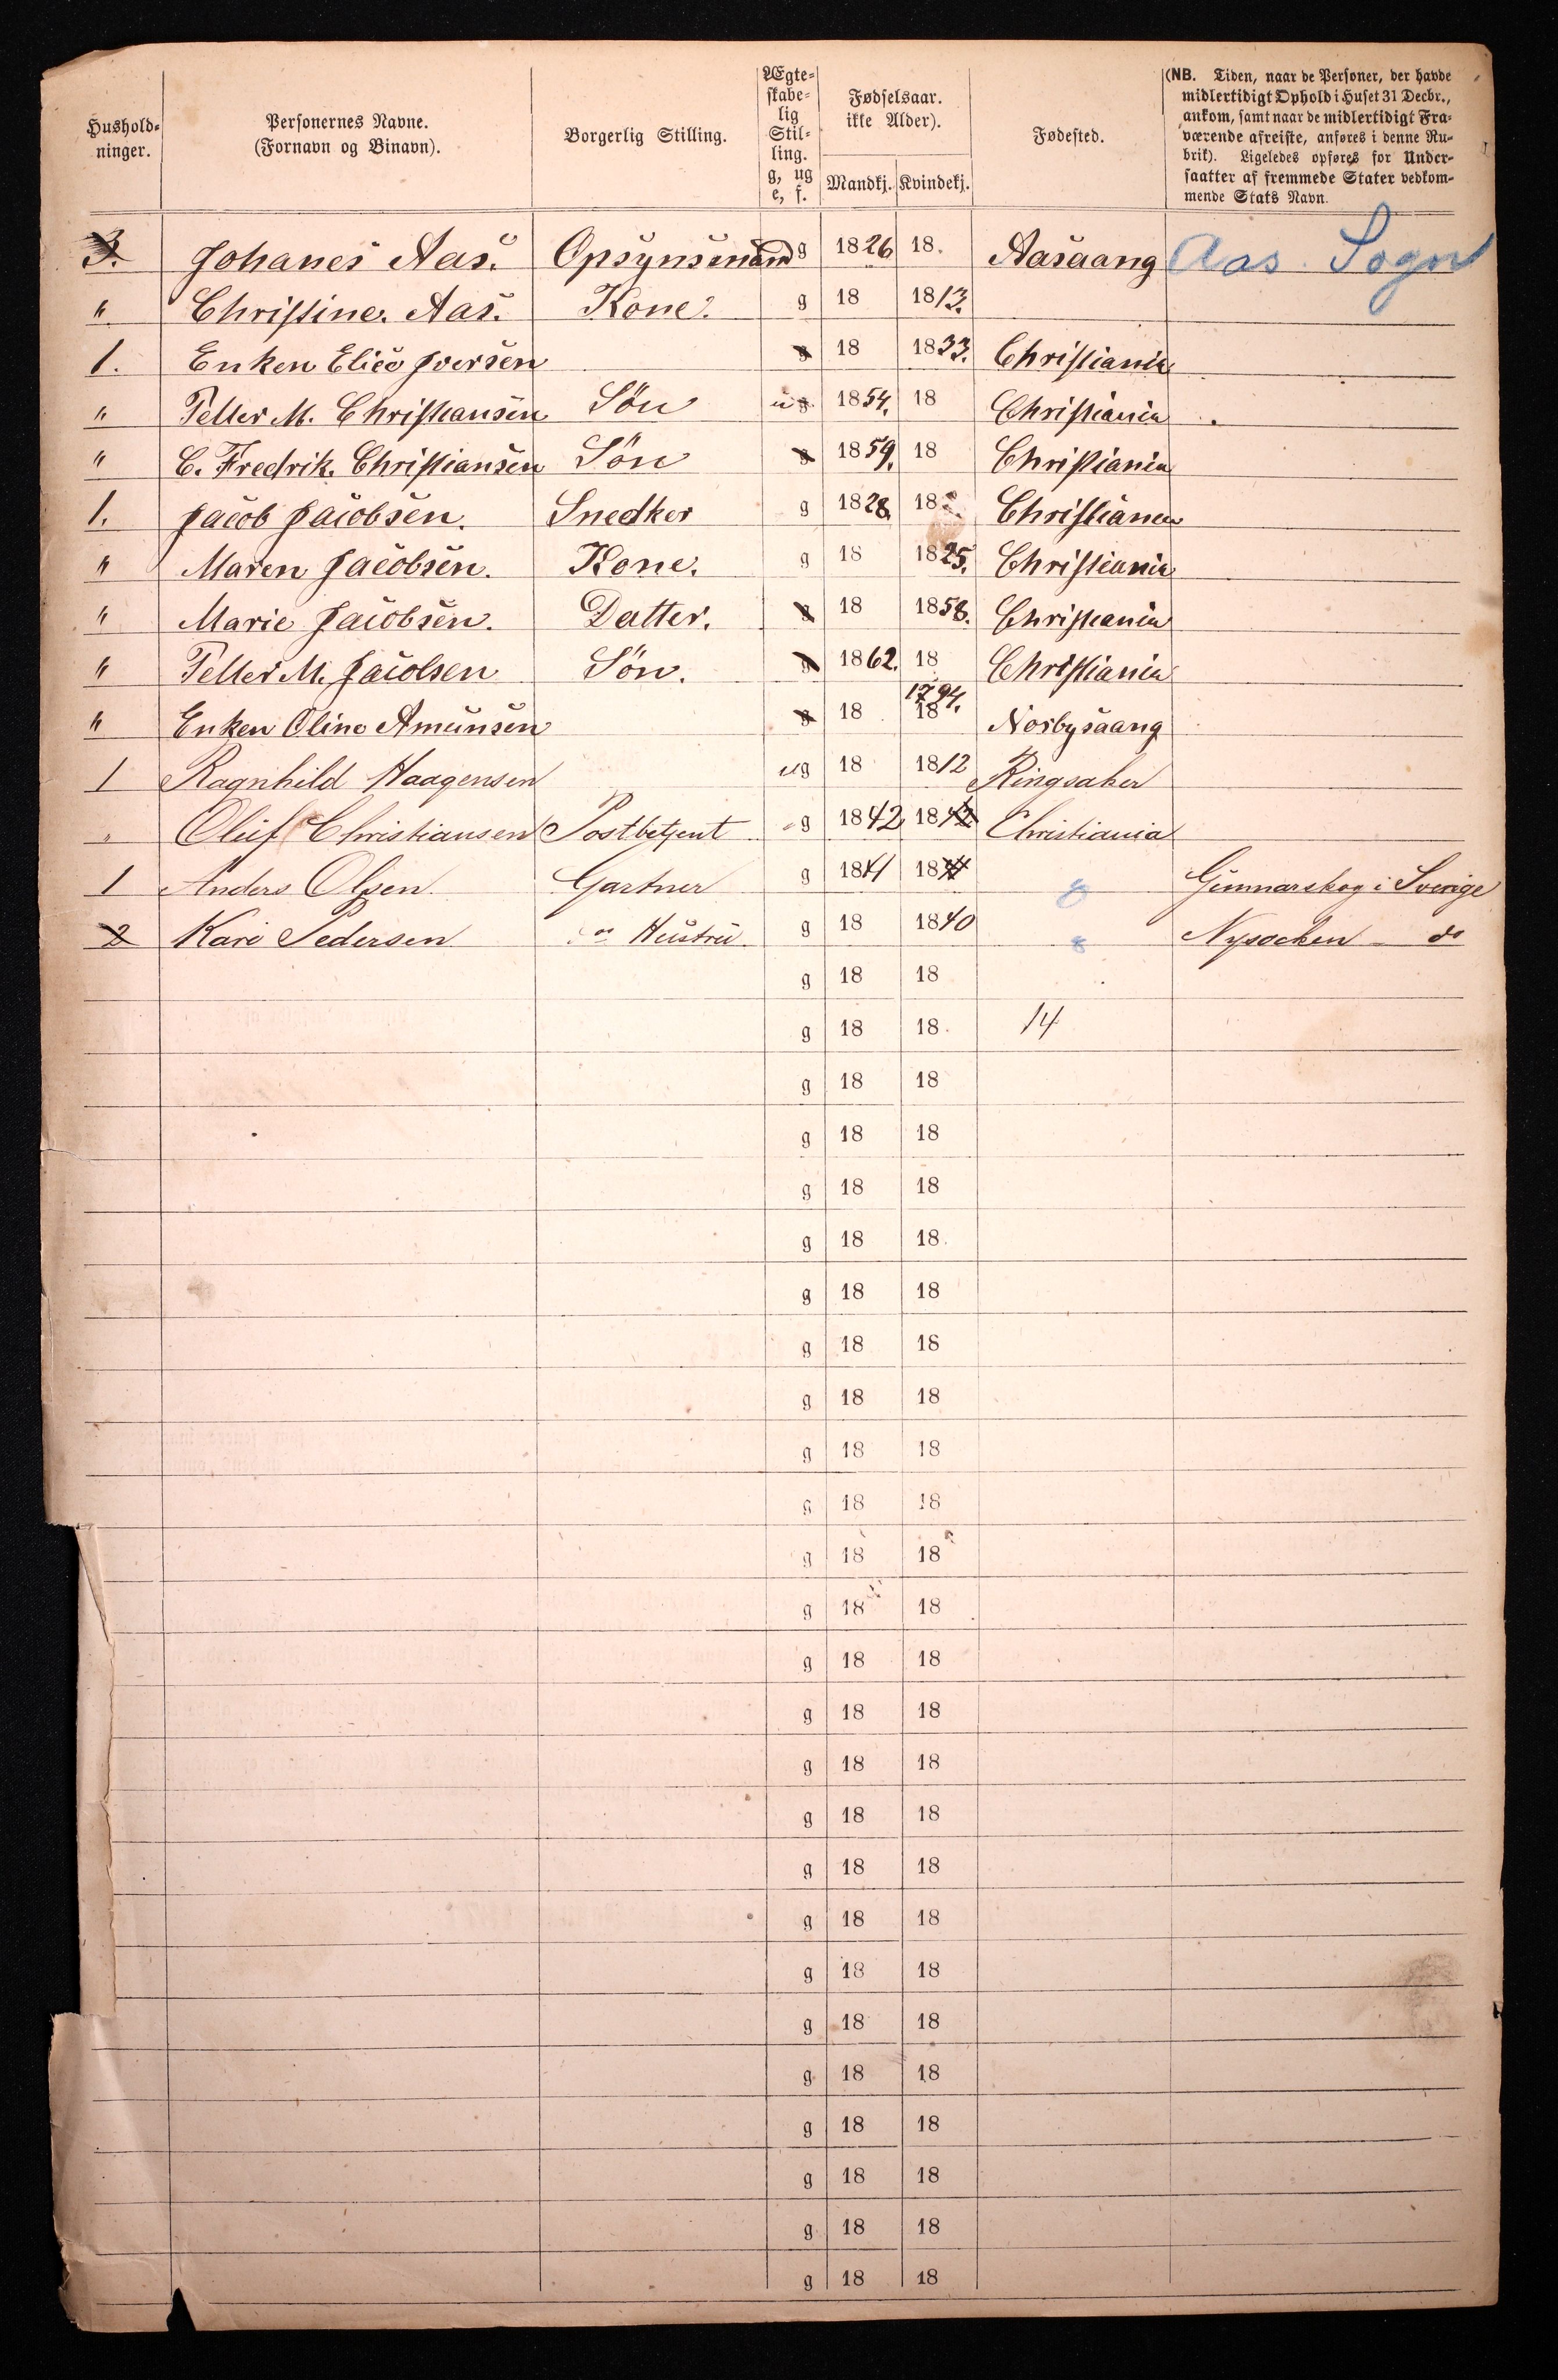 Hushold-
ninger.
Personernes Navne.
(Fornavn og Binavn).
Borgerlig Stilling.
Ægte-
skabe-
lig
Stil-
ling.
g, ug
e, f.
Fødselsaar.
ikke Alder).
Mandkj. Kvindekj.
Fødested.
(NB. Tiden, naar de Personer, der havde
midlertidigt Ophold i Huset 31 Decbr.,
ankom, samt naar de midlertidigt Fra-
værende afreiste, anføres i denne Ru-
brik). Ligeledes opføres for Under-
saatter af fremmede Stater vedkom-
mende Stats Navn.
3. Johanes Aas. Opsynsmand g 1826 18 Aasaang Aas Sogn
" Christine. Aas. Kone. g 18 1813.
1. Enken Elise Iversen g 18 1833. Christiania
" Petter M. Christiansen Sön ug 1854. 18 Christiania
" C. Fredrik. Christiansen Sön g 1859. 18 Christiania
1. Jacob Jacobsen. Snedker g 1828. 18 Christiania
" Maren Jacobsen. Kone. g 18 1825. Christiania
" Marie Jacobsen. Datter. g 18 1858. Christiania
" Petter M. Jacobsen Sön. g 1862. 18 Christiania
" Enken Oline Amunsen g 18 18 1794. Norbysaang
1 Ragnhild Haagensen ug 18 1812 Ringsaker
" Oluf Christiansen Postbetjent g 1842 1842 Christiania
1 Anders Olsen Gartner g 1841 18 Gunnarskog i Sverige
2 Kari Pedersen Hustru g 18 1840 Nysocken - do
g 18 18
g 18 18 14
g 18 18
g 18 18
g 18 18
g 18 18
g 18 18
g 18 18
g 18 18
g 18 18
g 18 18
g 18 18
g 18 18
g 18 18
g 18 18
g 18 18
g 18 18
g 18 18
g 18 18
g 18 18
g 18 18
g 18 18
g 18 18
g 18 18
g 18 18
g 18 18